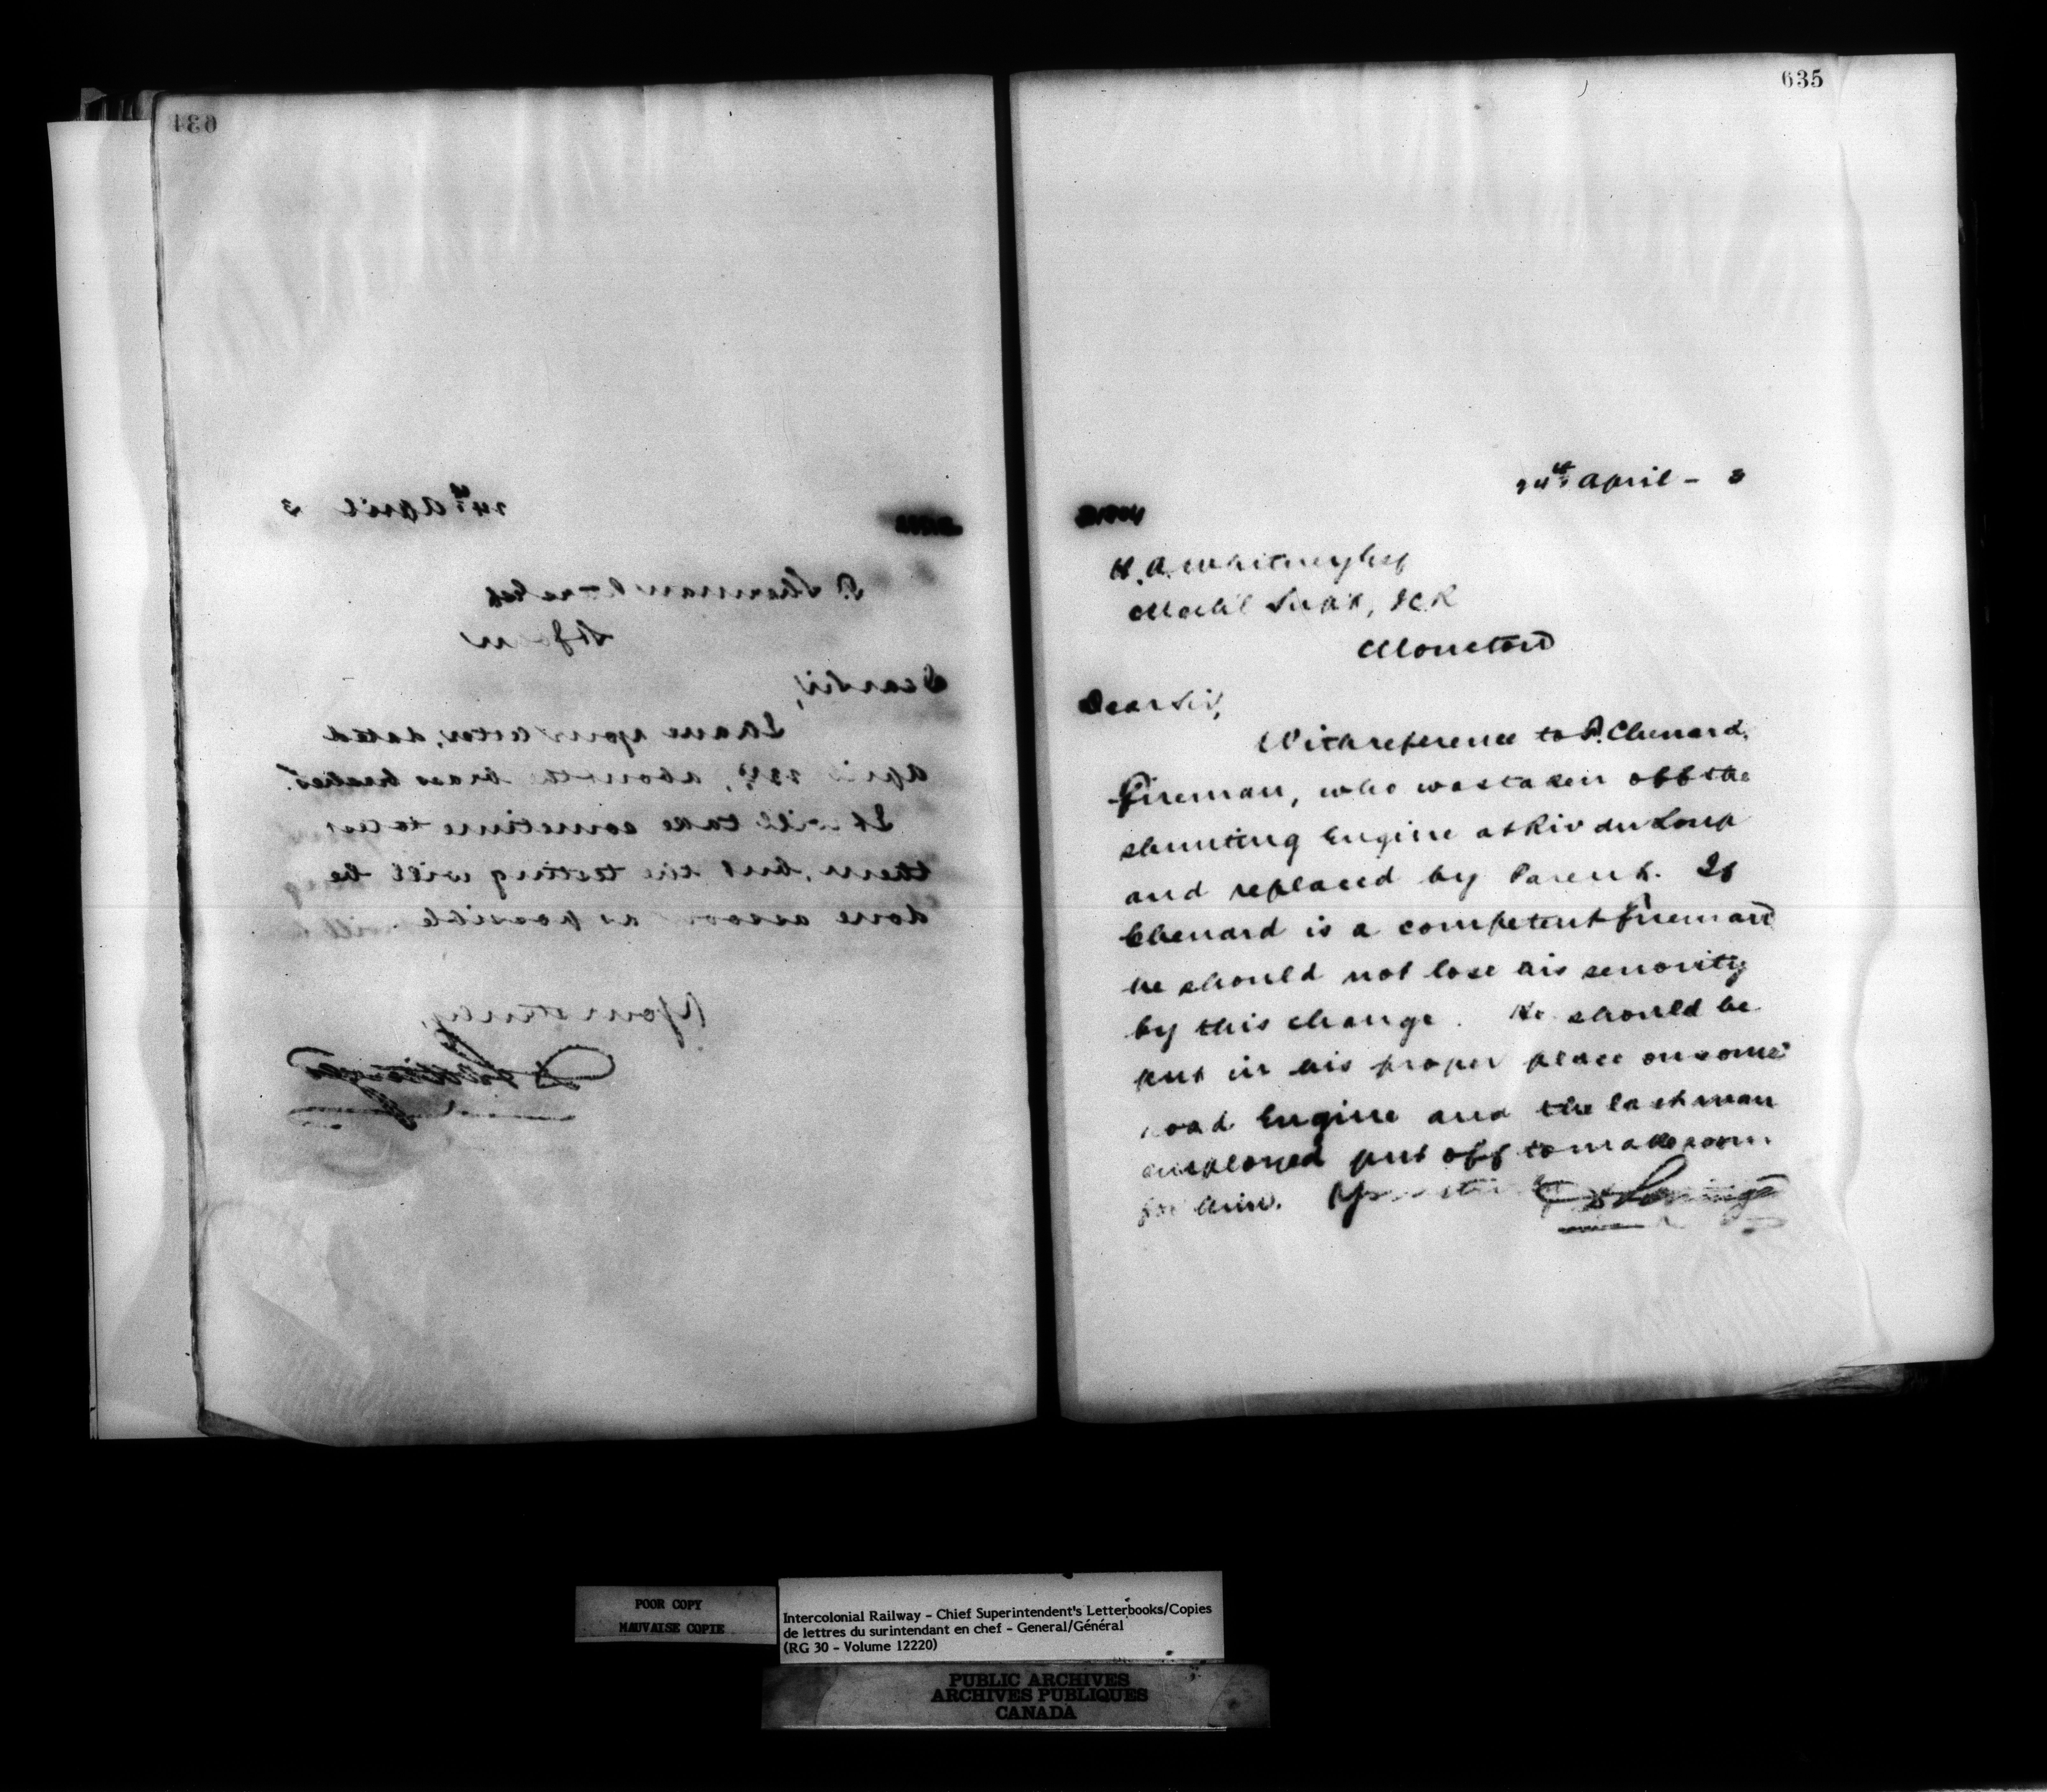 634
24th April 3
Dear Sir,
I have your letter, dated
April 23rd, about the brass
It will take sometime to test
them, but the testing will be
done as soon as possible
Yours truly,
635
24th April - 3
H. A. Whitney Esq
Mech'l Supt, ICR
Moncton
Dear Sir,
With reference to P. Chenard,
Fireman, who was taken off the
shunting Engine at Riv du Loup
and replaced by Parent. If
Chenard is a competent fireman
he should not lose his senority
by this change. He should be
put in his proper place on some
road Engine and the last man
employed put off to make room
for him. Yours truly
POOR COPY
MAUVAISE COPIE
Intercolonial Railway - Chief Superintendent's Letterbooks/Copies
de lettres du surintendant en chef - General/Général
(RG 30 - Volume 12220)
PUBLIC ARCHIVES
ARCHIVES PUBLIQUES
CANADA